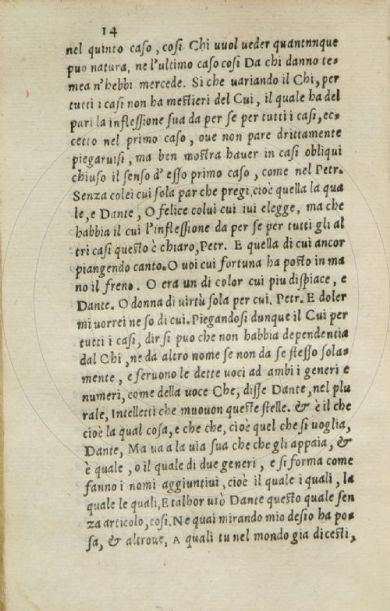 14
nel quinto caso, cosi Chi vuol veder quantnnque
puo natura, ne l'ultimo caso cosi Da chi danno te-
mea n'hebbi mercede. Si che variando il Chi, per
tutti i casi non ha mestieri del Cui, il quale ha del
pari la inflessione sua da per se per tutti i casi, ec-
cetto nel primo caso, oue non pare drittamente
piegaruisi, ma ben mostra hauer in casi obliqui
chiuso il senso d'esso primo caso, come nel Petr.
Senza colei cui sola par che pregi, cioè quella la qua
le, e Dante, O felice colui cui iui elegge, ma che
habbia il cui l'inflessione da per se per tutti gli al
tri casi questo è chiaro, Petr. E quella di cui ancor
piangendo canto. O uoi cui fortuna ha posto in ma
no il freno. O era un di color cui piu dispiace, e
Dante. O donna di uirtù sola per cui. Petr. E doler
mi uorrei ne so di cui. Piegandosi dunque il Cui per
tutti i casi, dir si puo che non habbia dependentia
dal Chi, ne da altro nome se non da se stesso sola-
mente, e seruono le dette uoci ad ambi i generi e
numeri, come della uoce Che, disse Dante, nel plu
rale, Intelletti che muouon queste stelle. & è il che
cioè la qual cosa, e che che, cioè quel che si uoglia,
Dante, Ma ua a la uia sua che che gli appaia, &
è quale, o il quale di due generi, e si forma come
fanno i nomi aggiuntiui, cioè il quale i quali, la
quale le quali, E talhor usò Dante questo quale sen
za articolo, cosi. Ne quai mirando mio desio ha po-
sa, & altroue, A quali tu nel mondo gia dicesti,